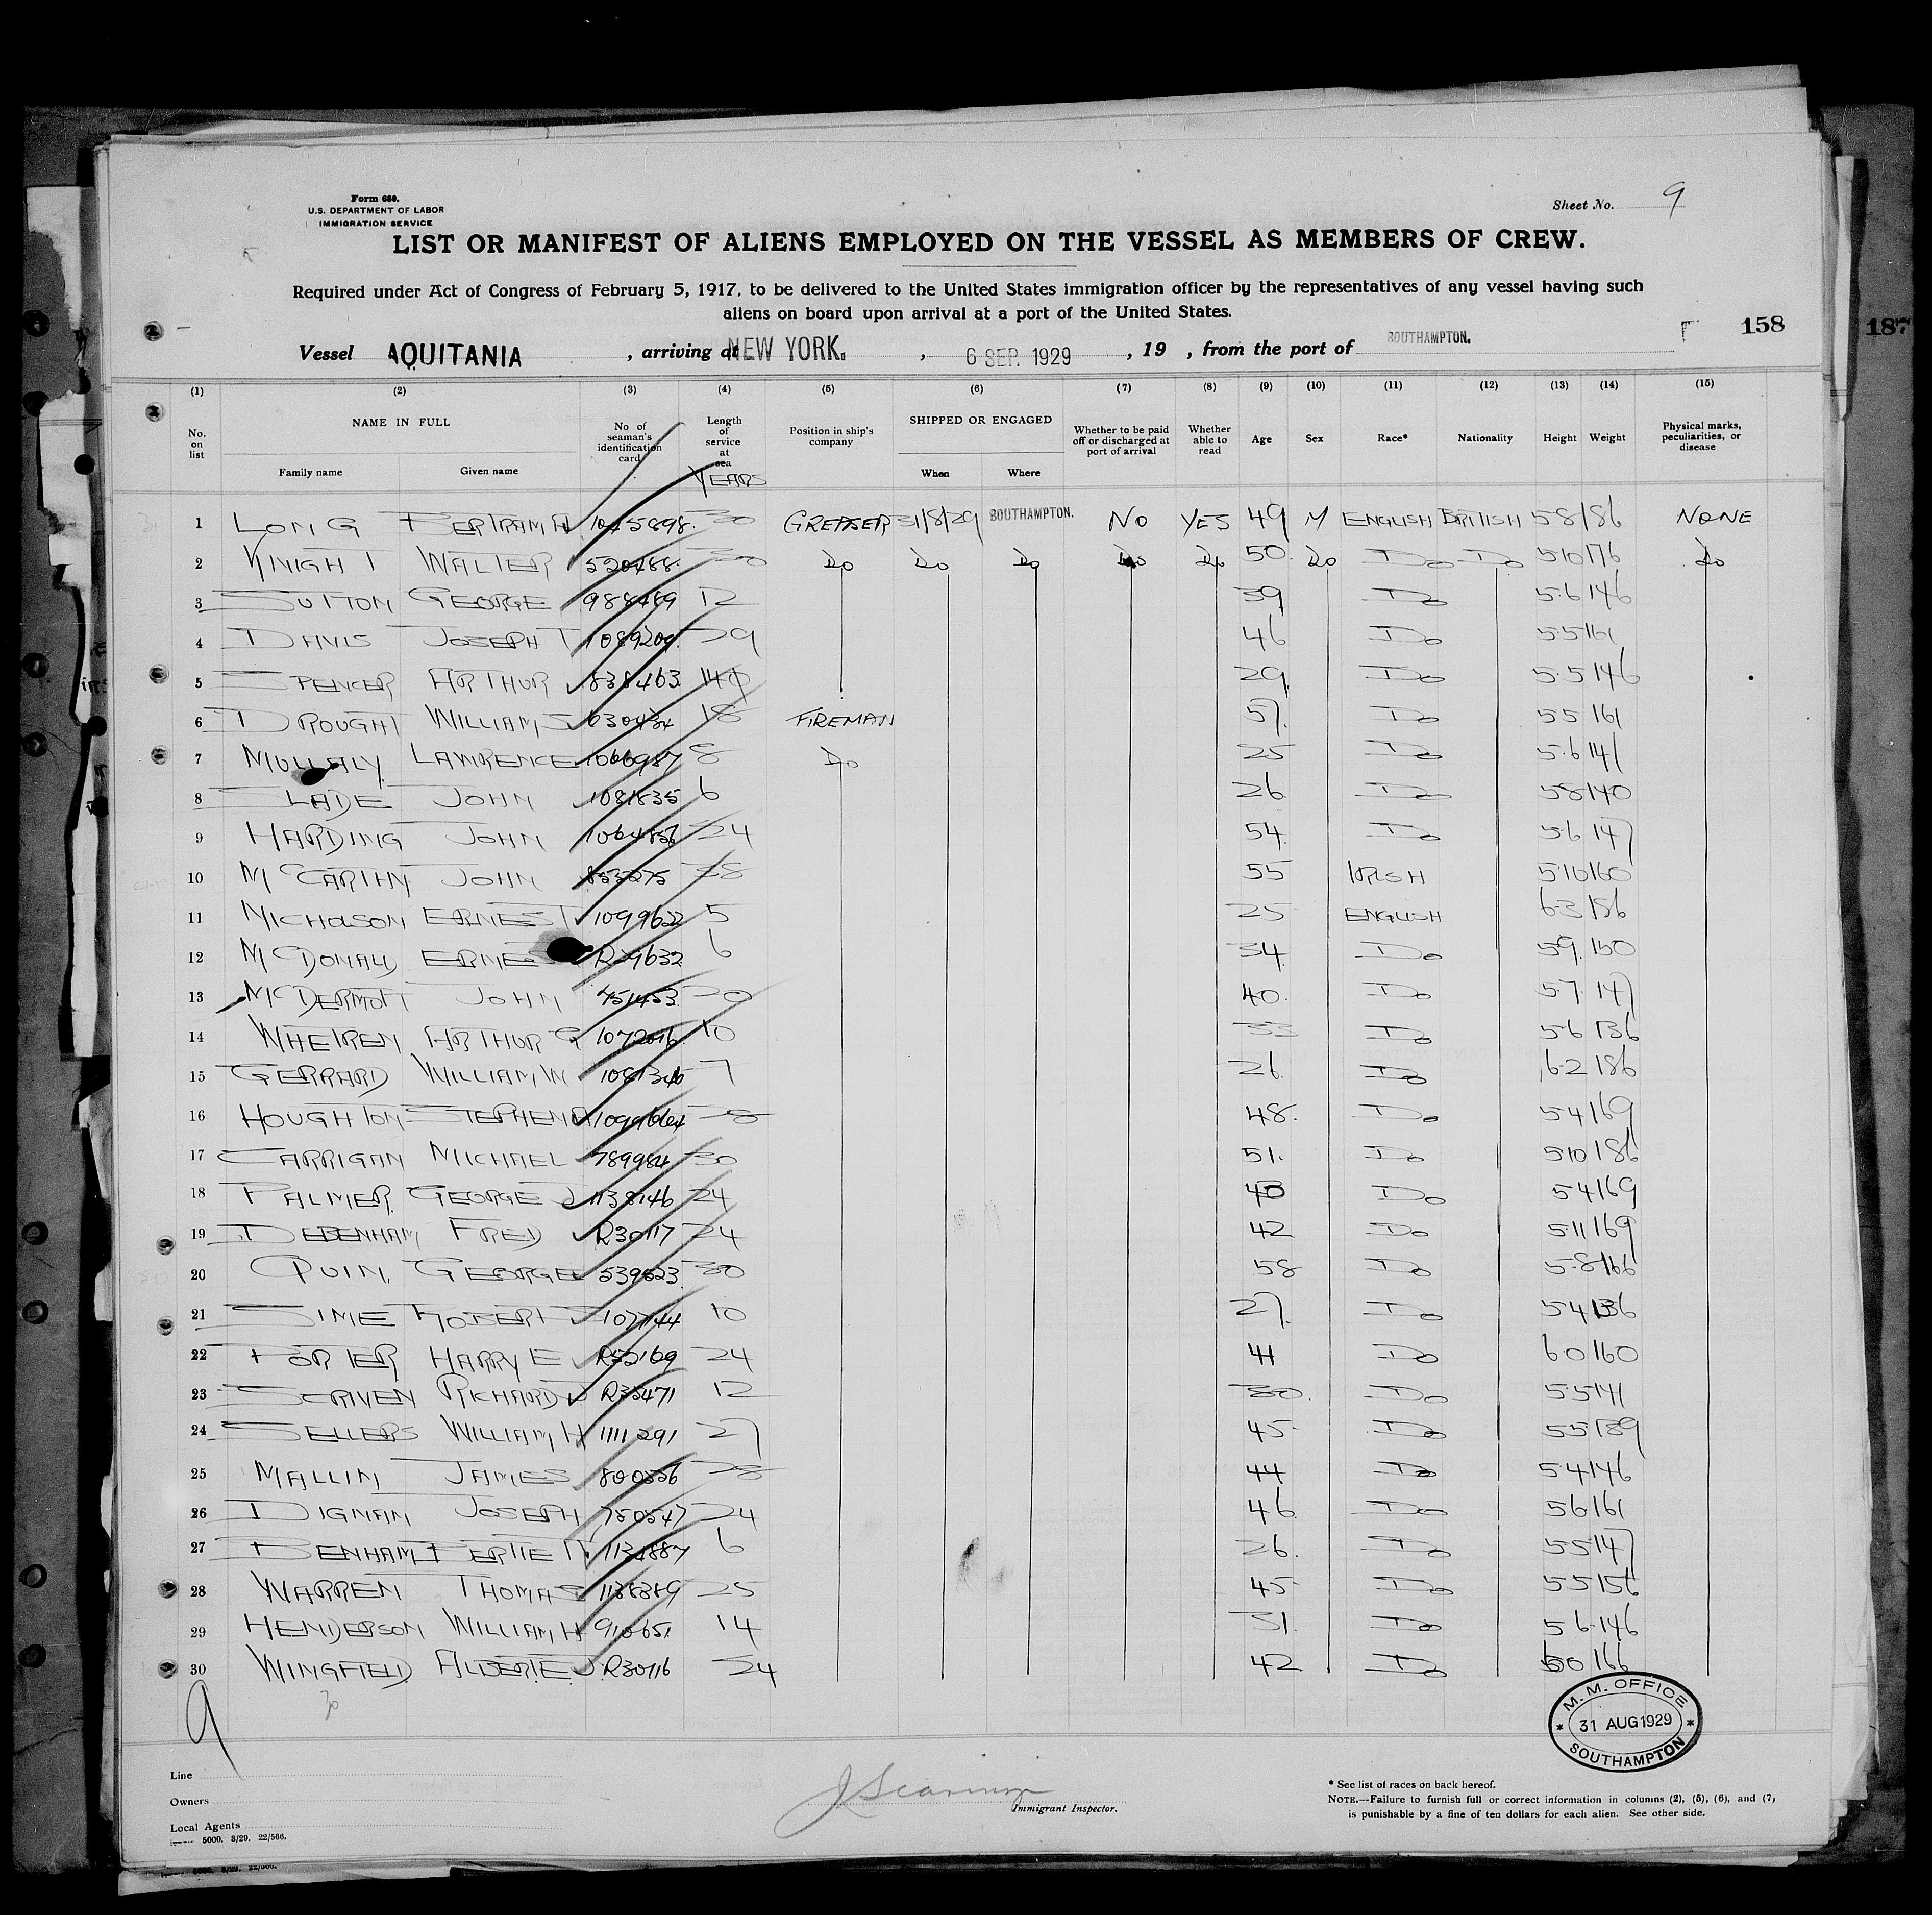 Form 680.
U.S. DEPARTMENT OF LABOR
IMMIGRATION SERVICE
Sheet No. 9
LIST OR MANIFEST OF ALIENS EMPLOYED ON THE VESSEL AS MEMBERS OF CREW.
Required under Act of Congress of February 5, 1917, to be delivered to the United States immigration officer by the representatives of any vessel having such
aliens on board upon arrival at a port of the United States.
158 187
Vessel AQUITANIA, arriving at NEW YORK., 6 SEP. 1929, 19 , from the port of SOUTHAMPTON.
(1) (2) (3) (4) (5) (6) (7) (8) (9) (10) (11) (12) (13) (14) (15)
No. on list NAME IN FULL Family name Given name No of seaman's identification card Length of service at sea YEARS Position in ship's company SHIPPED OR ENGAGED When Where Whether to be paid off or discharged at port of arrival Whether able to read Age Sex Race* Nationality Height Weight Physical marks, peculiarities, or disease
1 LONG BERTRAM A 30 GREASER 31/8/29 SOUTHAMPTON. NO YES 49 M ENGLISH BRITISH 58 186 NONE
2 KNIGHT WALTER 30 Do Do Do Do Do 50 Do Do Do 510 176 Do
3 SUTTON GEORGE 988469 12 39 Do 5.6 146
4 DAVIS JOSEPH T 1089209 29 46 Do 55 161
5 SPENCER ARTHUR 838463 29 Do 5.5 146
6 DROUGHT WILLIAM S 18 FIREMAN 57 Do 55 161
7 MULLALY LAWRENCE 1066987 8 Do 25 Do 5.6 141
8 SLADE JOHN 1081835 6 26 Do 58 140
9 HARDING JOHN 24 54 Do 5.6 147
10 McCARTHY JOHN 28 55 IRISH 510 160
11 NICHOLSON ERNEST 5 25 ENGLISH 6.3 186
12 McDONALD ERNEST 6 34 Do 59 150
13 McDERMOTT JOHN 20 40 Do 57 147
14 ARTHUR G 1072016 10 33 Do 56 136
15 GERRARD WILLIAM W 7 26 Do 6.2 186
16 HOUGHTON STEPHEN A 28 48 Do 54 169
17 CARRIGAN MICHAEL 789984 30 51 Do 510 186
18 PALMER GEORGE J 1138146 24 Do 54 169
19 DEBENHAM FRED R30117 24 42 Do 511 169
20 QUIN GEORGE 30 58 Do 5.8 166
21 SIME ROBERT 10 27 Do 54 136
22 PORTER HARRY E 24 41 Do 60 160
23 SCRIVEN RICHARD J 12 30 Do 55 141
24 SELLERS WILLIAM H 1111291 27 45 Do 55 189
25 MALLIN JAMES 28 44 Do 54 146
26 DIGNAM JOSEPH 750547 24 46 Do 56 161
27 BENHAM BERTIE 1134887 6 26 Do 55 147
28 WARREN THOMAS 25 45 Do 55 156
29 HENDERSON WILLIAM H 14 31 Do 56 146
30 WINGFIELD R30116 24 42 Do 60 166
9 30
M. M. OFFICE
31 AUG 1929
SOUTHAMPTON
Line
Owners
Local Agents
5000. 3/29. 22/566.
Immigrant Inspector.
* See list of races on back hereof.
NOTE.—Failure to furnish full or correct information in columns (2), (5), (6), and (7)
is punishable by a fine of ten dollars for each alien. See other side.
5000. 3/29. 22/566.